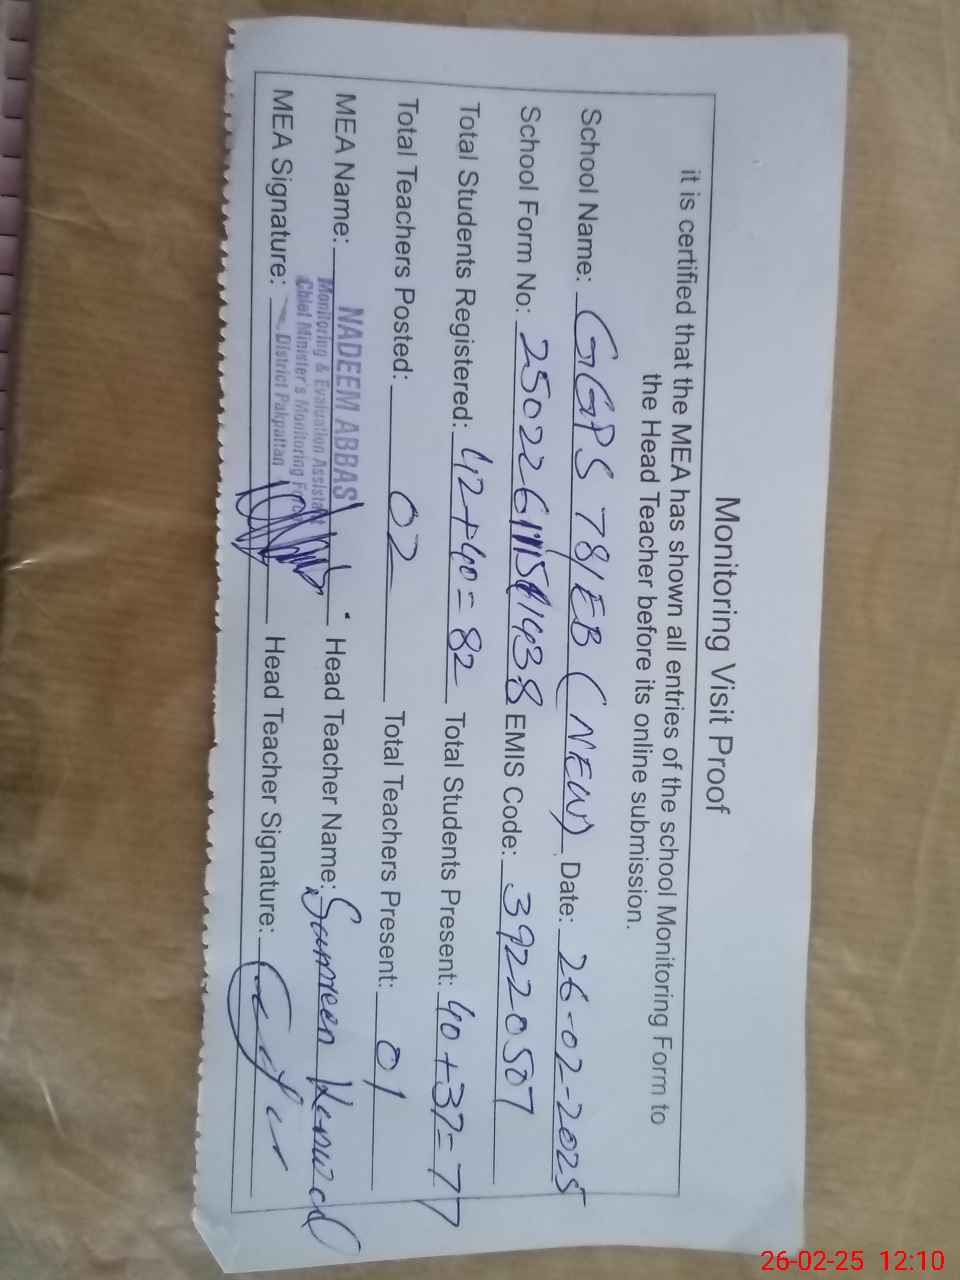 Monitoring Visit Proof
it is certified that the MEA has shown all entries of the school Monitoring Form to
the Head Teacher before its online submission.
School Name: GGPS 78/EB (NEW) Date: 26-02-2025
School Form No: EMIS Code: 39220507
Total Students Registered: 42+40=82 Total Students Present: 40+37=77
Total Teachers Posted: 02 Total Teachers Present: 01
MEA Name: NADEEM ABBAS Head Teacher Name: Samreen
Monitoring & Evaluation Assistant
Chief Minister's Monitoring Force
District Pakpattan
MEA Signature: Head Teacher Signature:
26-02-25 12:10